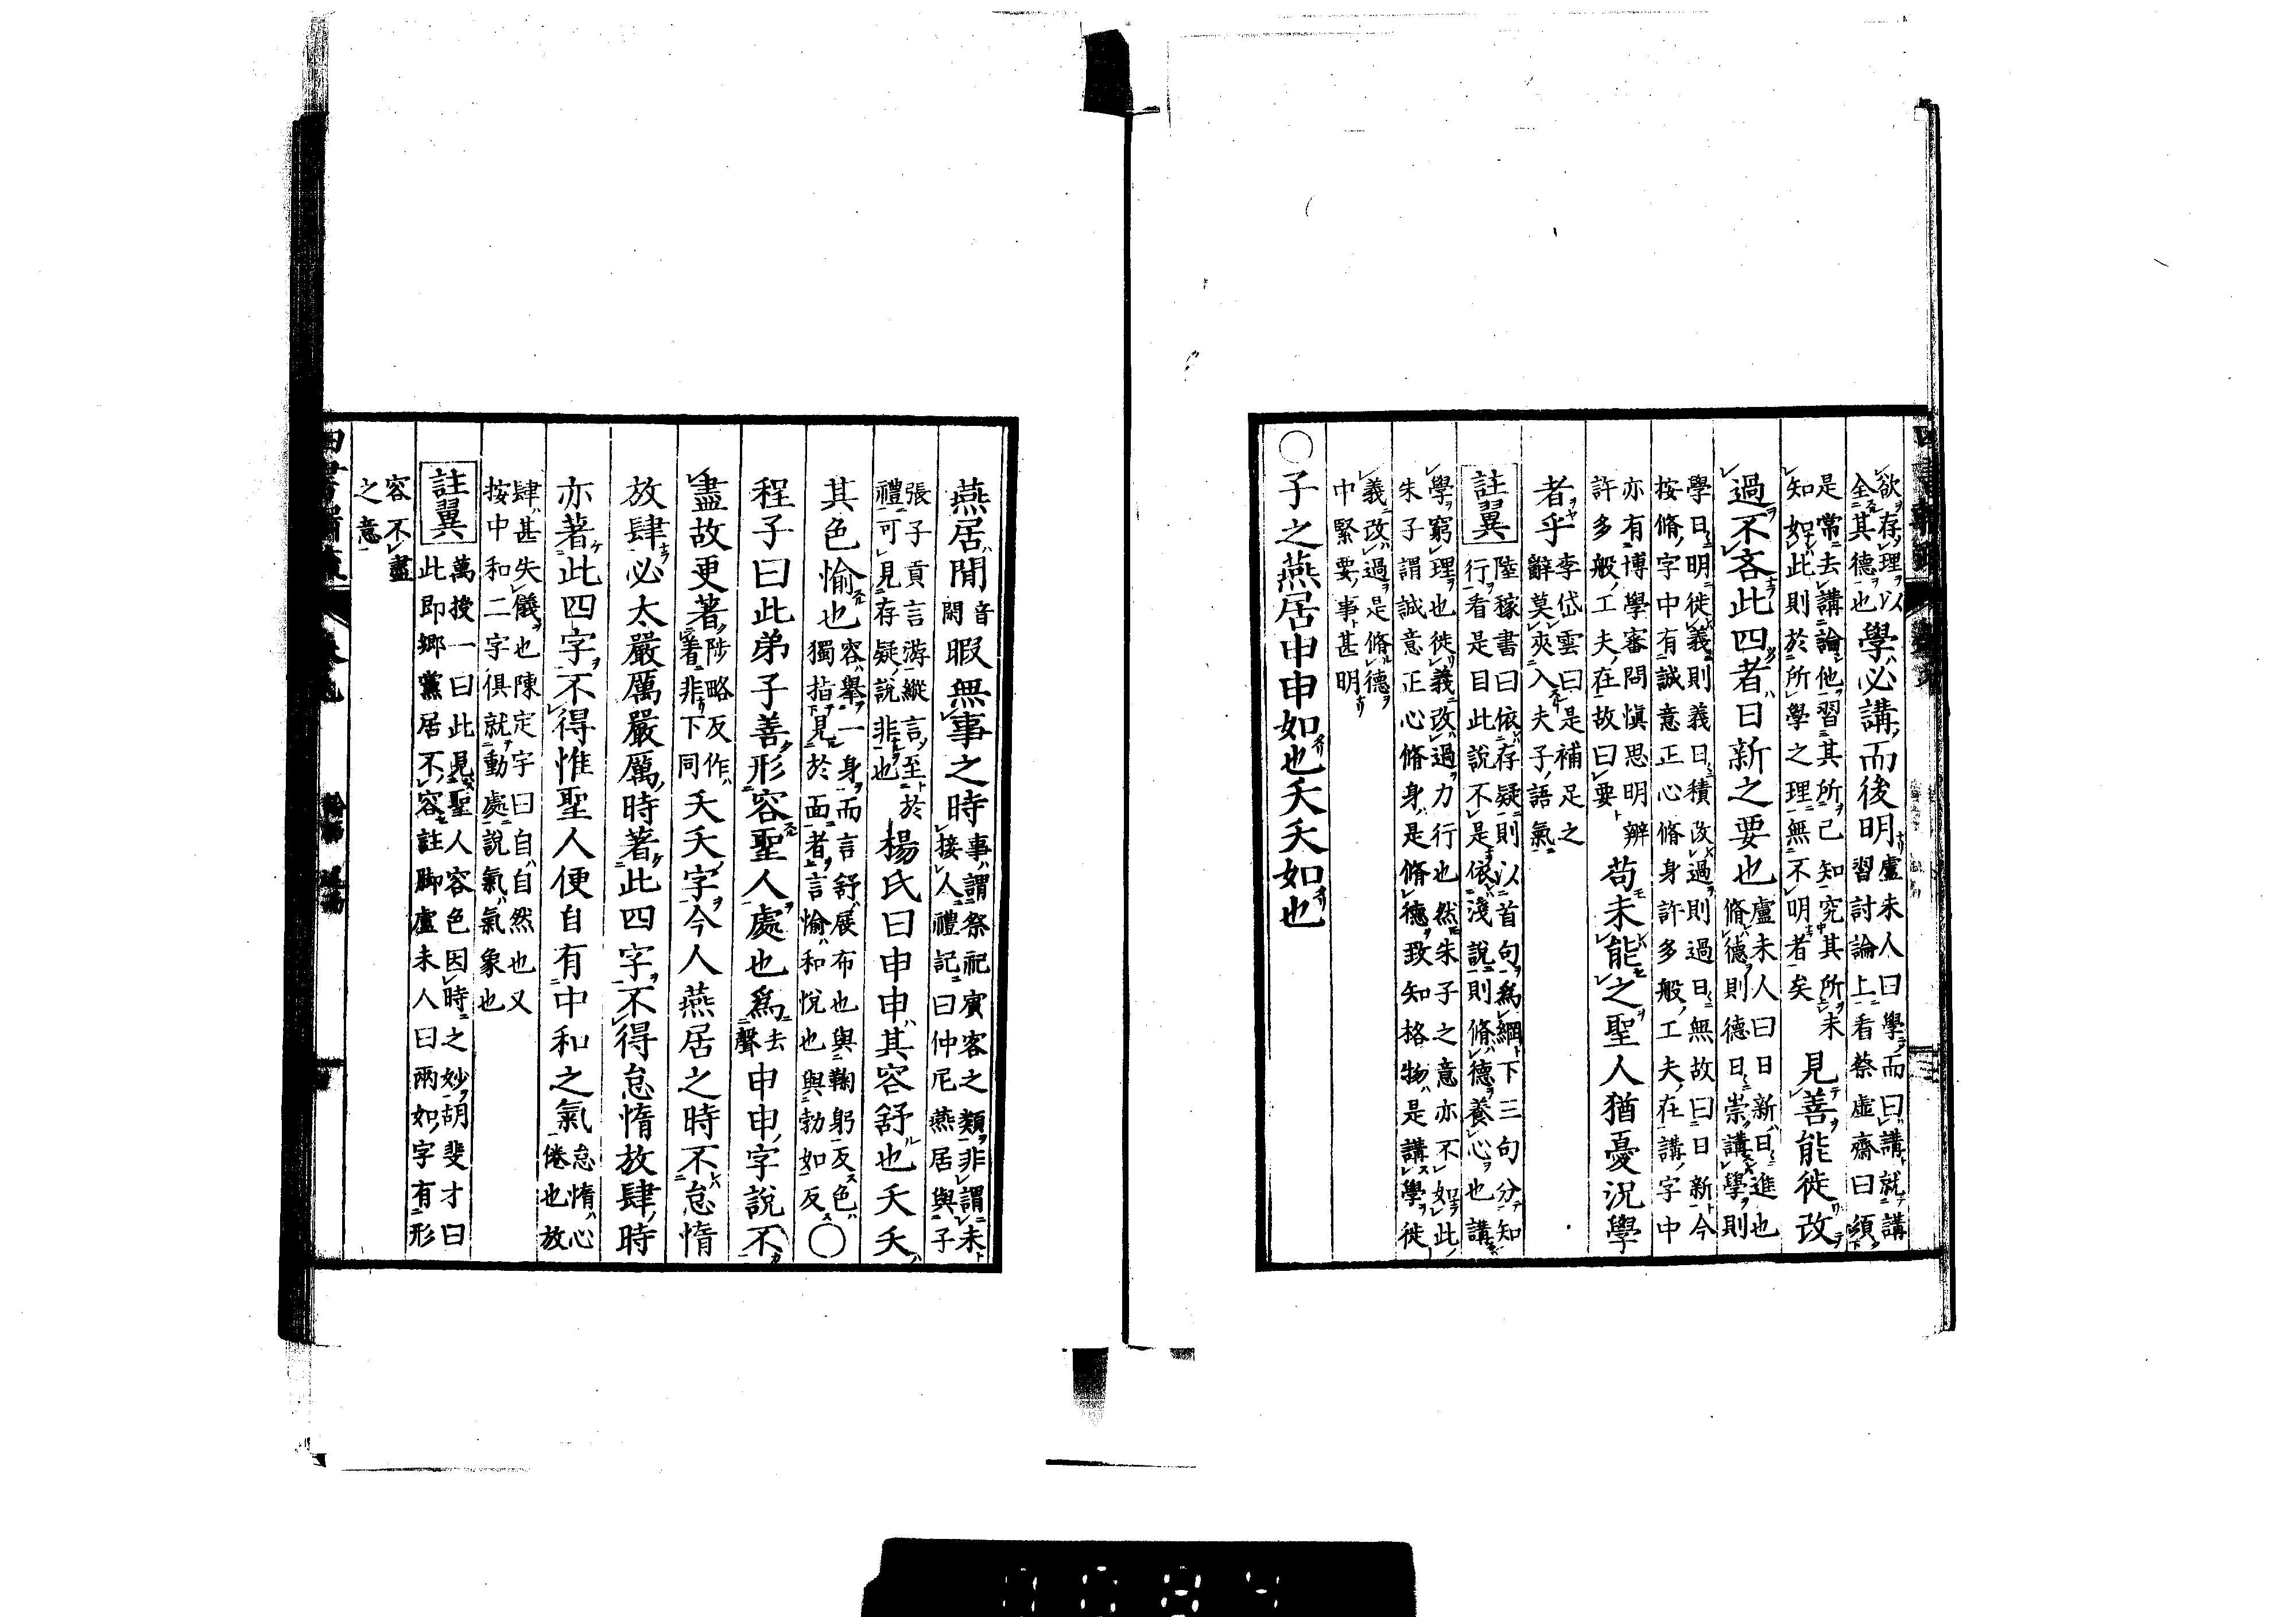 欲存理以全其德也學必講而後明盧未人曰學而曰講就講習討論上看蔡虛齋曰須
是常去講論他習其所已知究其所未知如此則於所學之理無不明者矣見善能徙改
過不吝此四者日新之要也盧未人曰日新日進也脩德則德日崇講學則
學日明徙義則義日積改過則過日無故曰日新今按脩字中有誠意正心脩身許多般工夫在講字中
亦有博學審問愼思明辨許多般工夫在故曰要苟未能之聖人猶憂況學
者乎李岱雲曰是補足之辭莫夾入夫子語氣
註翼陸稼書曰依存疑則以首句爲綱下三句分知行看是目此說不是依淺說則脩德養心也講
學窮理也徙義改過力行也然朱子之意亦不如此朱子謂誠意正心脩身是脩德致知格物是講學徙
義改過是脩德中緊要事甚明
○子之燕居申申如也夭夭如也
燕居閒音閑暇無事之時事謂祭祀賓客之類非謂未接人禮記曰仲尼燕居與子
張子貢言游縱言至於禮可見存疑說非也楊氏曰申申其容舒也夭夭
其色愉也容舉一身而言舒展布也與鞠躬反色獨指見於面者言愉和悅也與勃如反○
程子曰此弟子善形容聖人處也爲去聲申申字說不
盡故更著陟略反作着非下同夭夭字今人燕居之時不怠惰
放肆必太嚴厲嚴厲時著此四字不得怠惰放肆時
亦著此四字不得惟聖人便自有中和之氣怠惰心倦也放
肆甚失儀也陳定宇曰自自然也又按中和二字俱就動處說氣氣象也
註翼萬授一曰此見聖人容色因時之妙胡斐才曰此即鄉黨居不容註脚盧未人曰兩如字有形
容不盡之意